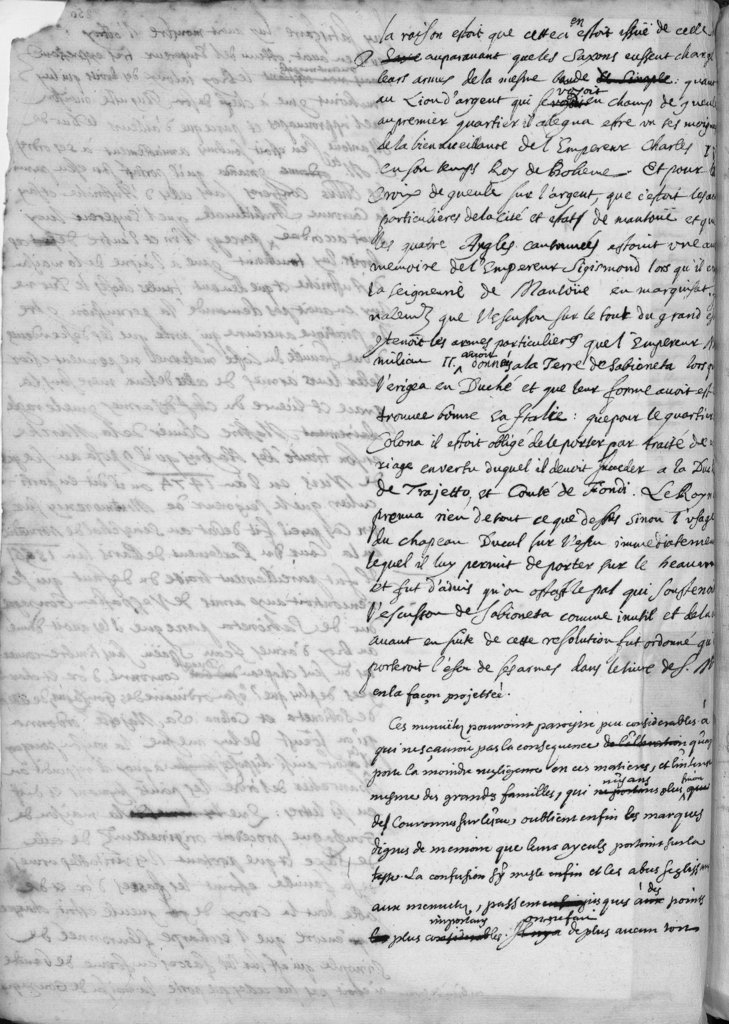 la raison estoit que cetteci en estoit issuë de celle
Saxe auparavant que les Saxons eussent chang
leurs armes de la mesme bande et simple : quant
au Lion d'argent qui se voyoit en champ de gueul
au premier quartier il allegua estre un tesmoign
de la bienueillance de l'Empereur Charles
en son temps Roy de Boheme. Et pour
Croix de gueule sur l'argent, que c'estoit les ar
particulieres de la cité et estat de mantouë et que
les quatre Aigles cantonnées estoint une
memoire de l'Empereur Sigismond lors qu'il e
la seigneurie de Mantoüe en marquisat.
que l'escusson sur le tout du grand
contenoit les armes particulieres que l'Empereur M
milian II. avoit donné a la Terre de Sabioneta lors q
l'erigea en Duché et que leur forme avoit est
trouuee bonne en Italie : que pour le quartier
Colona il estoit obligé de le porter par traité de
riage en vertu duquel il deuoit succeder a la Duc
de Trajetto, et Conté de Fondi. Le Roy n
prouua rien de tout ce que dessus sinon l'usage
du chapeau Ducal sur l'escu immediatemen
lequel il luy permit de porter sur le heaume
et fut d'aduis qu'on ostast le pal qui soustenoi
l'escusson de Sabioneta comme inutil et de la
auant en suite de cette resolution fut ordonné qu
porteroit l'escu de ses armes dans le livre de S. M
en la façon projettée.
Ces minuitez pouroint paroistre peu considerables à
qui ne sçauroit pas la consequence de l'alteration qu'
porte la moindre negligence en ces matieres, et
mesme des grandes familles, qui n'ayans plus
des Couronnes sur l'escu, oublient enfin les marques
dignes de memoire que leurs ayeuls portoint sur la
teste. La confusion s'y mesle enfin et les abus se glissans
aux menuitez, passent enfin jusques aux des points
les plus considerables importans. on ne fait de plus aucun